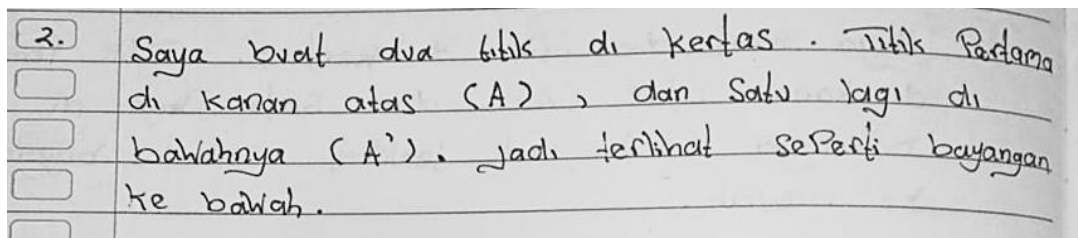 2. Saya buat dua titik di kertas. Titik Pertama
di kanan atas (A), dan Satu lagi di
bawahnya (A'). Jadi terlihat seperti bayangan
ke bawah.